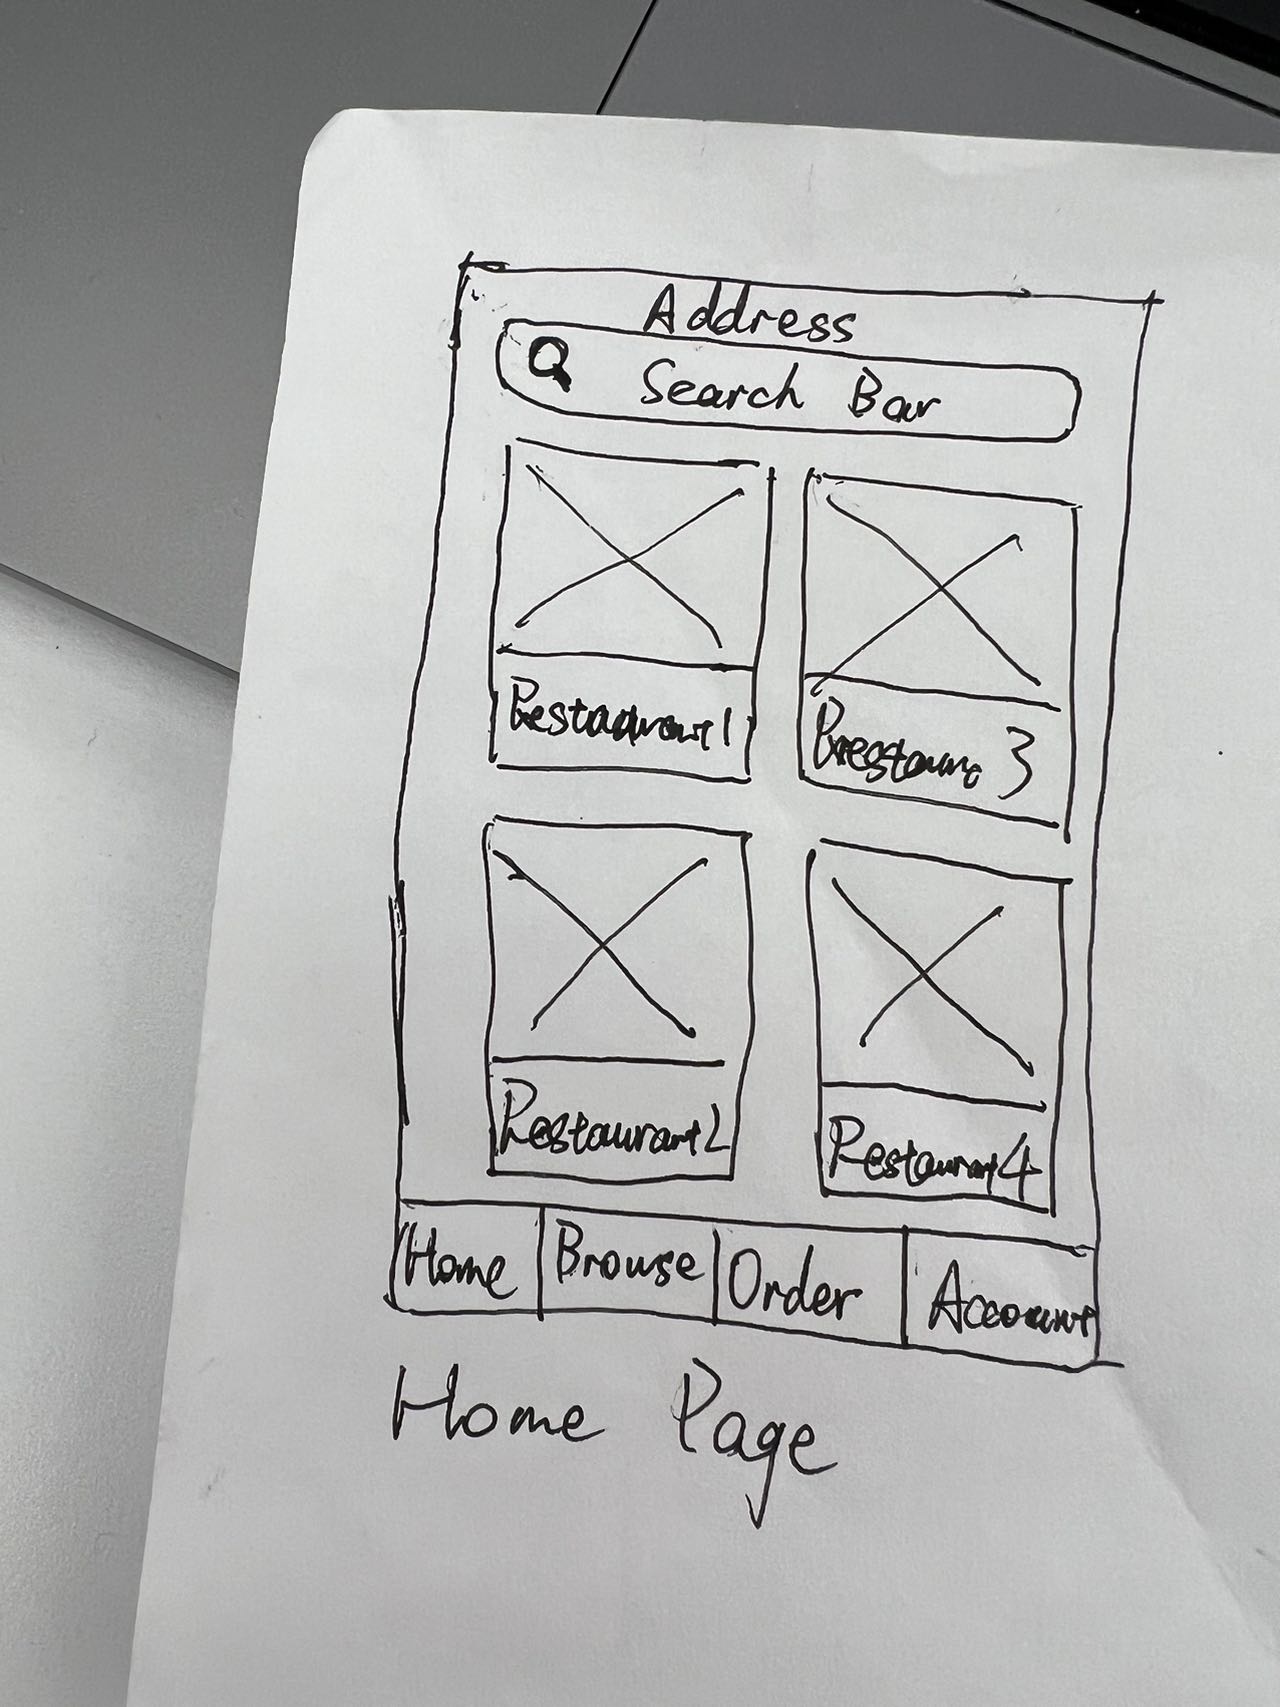 Address
Search Bar
Restaurant 1
3
Restaurant 2
Restaurant 4
Home
Browse
Order
Account
Home Page